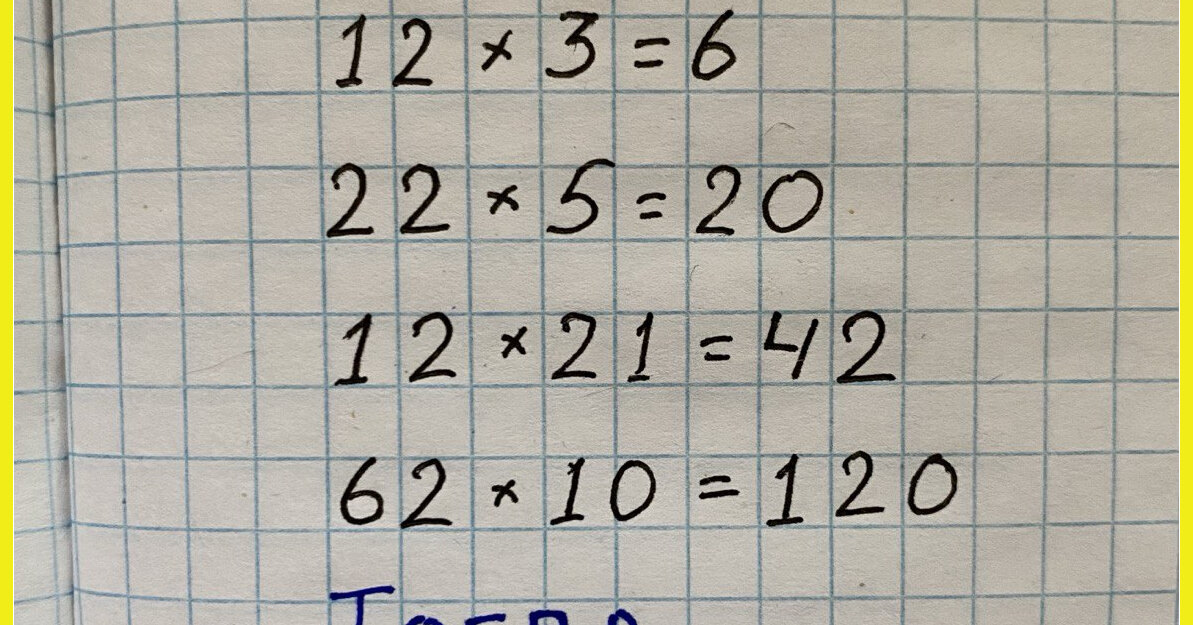 12 × 3 = 6
22 × 5 = 20
12 × 21 = 42
62 × 10 = 120